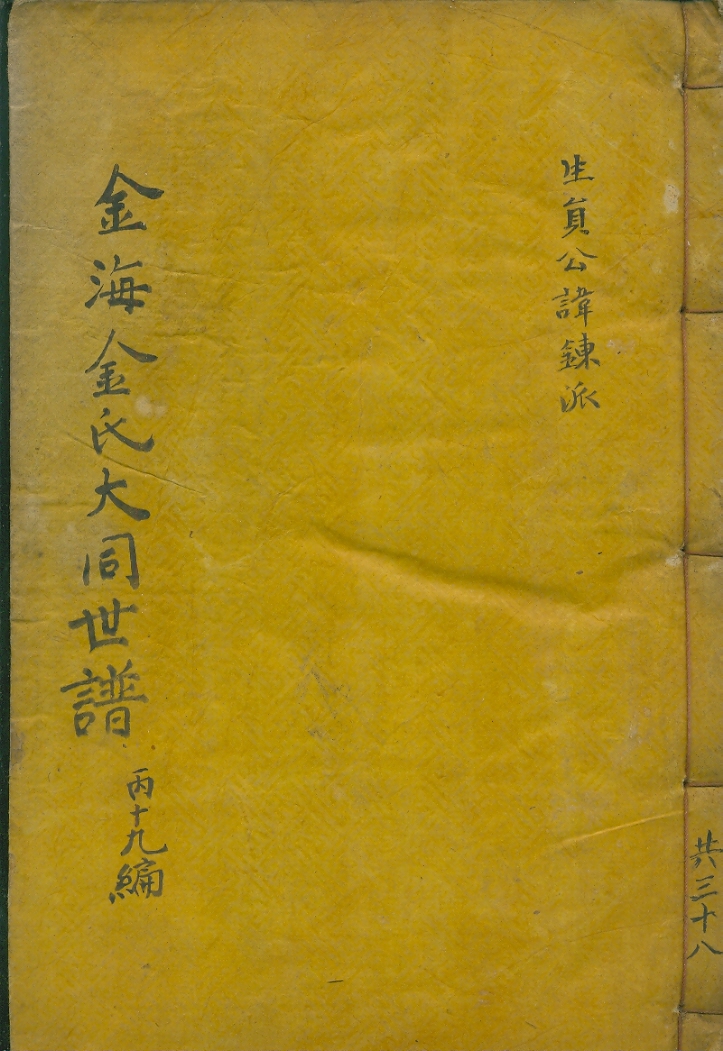 共三十八
生員公諱錬派
金海金氏大同世譜
丙十九編